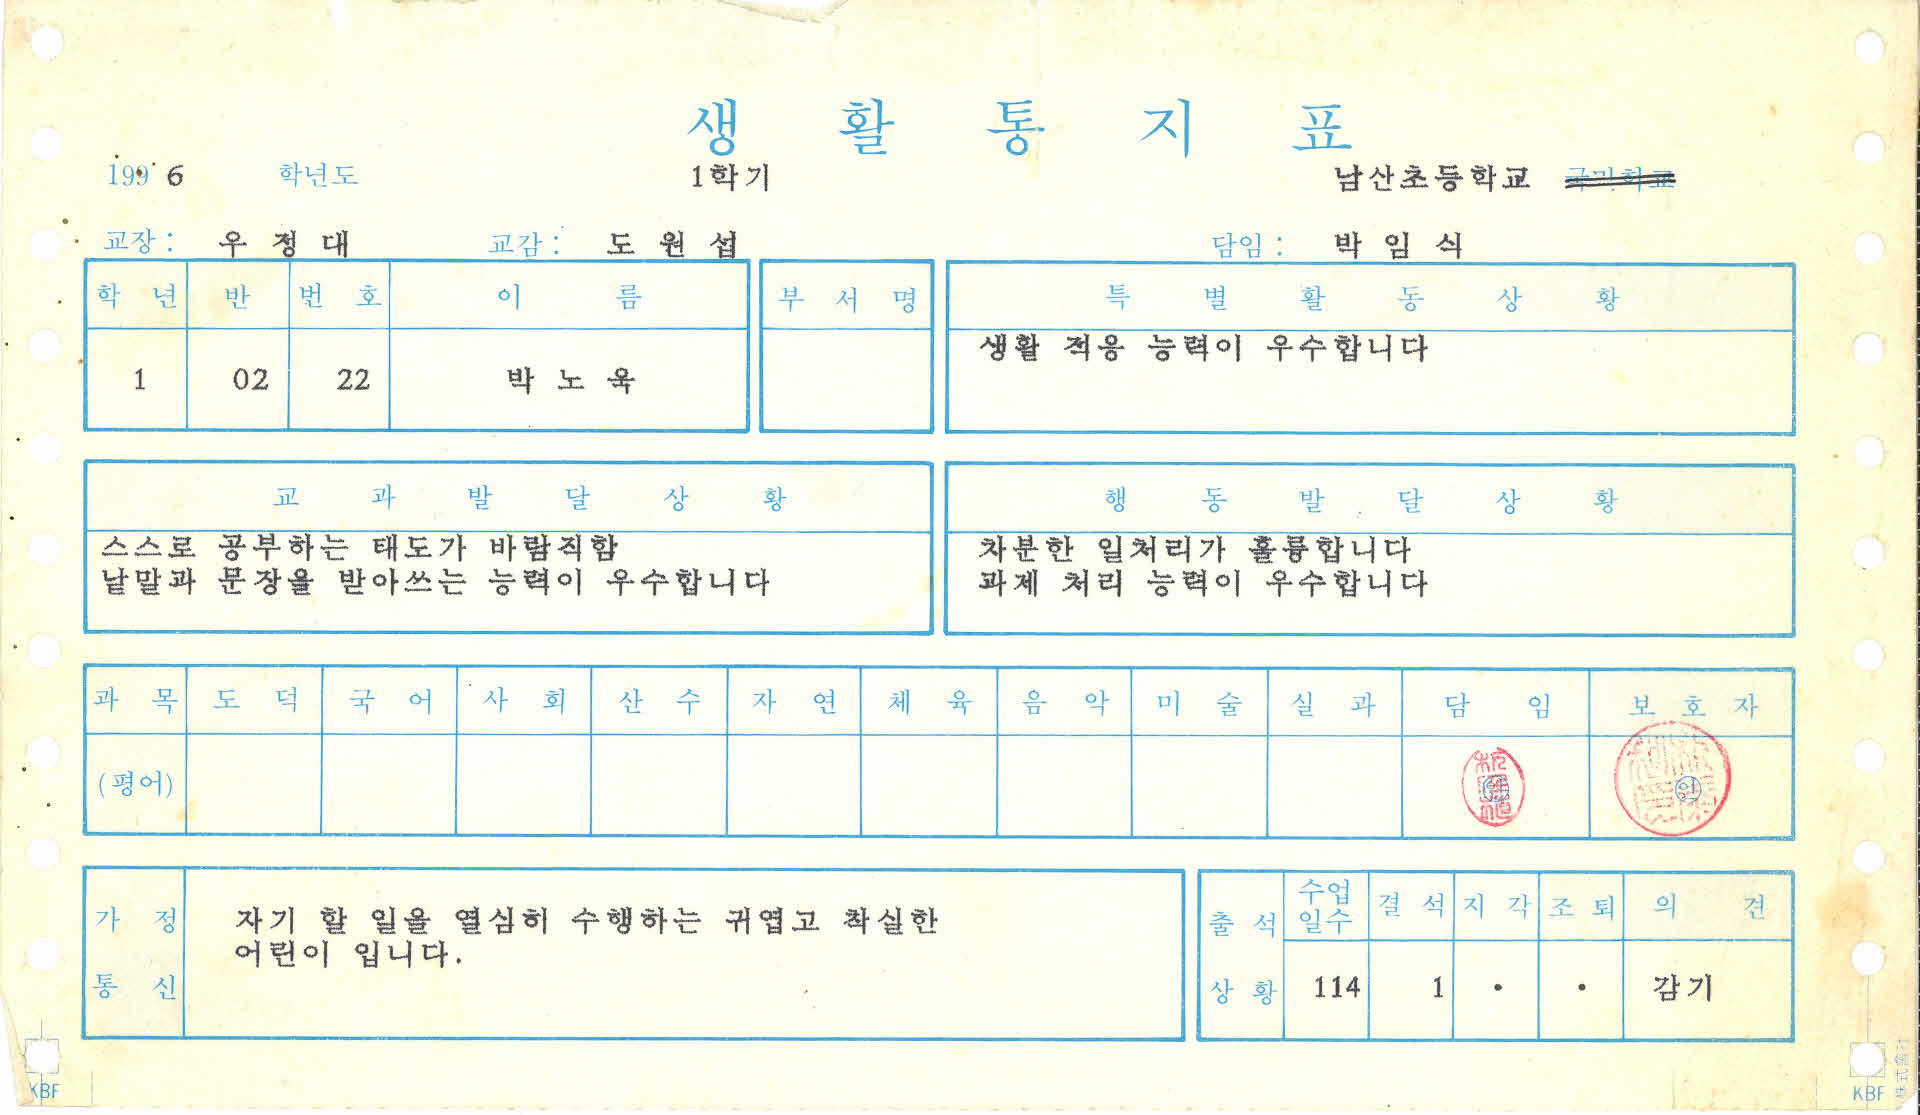 생 활 통 지 표
199 6 학년도 1학기 남산초등학교 국민학교
교장 : 우 정 대 교감 : 도 원 섭 담임 : 박 임 식
학 년 반 번 호 이 름 부 서 명 특 별 활 동 상 황
생활 적응 능력이 우수합니다
1 02 22 박 노 욱
교 과 발 달 상 황 행 동 발 달 상 황
스스로 공부하는 태도가 바람직함 차분한 일처리가 훌륭합니다
낱말과 문장을 받아쓰는 능력이 우수합니다 과제 처리 능력이 우수합니다
과 목 도 덕 국 어 사 회 산 수 자 연 체 육 음 악 미 술 실 과 담 임 보 호 자
(평어) 인 인
가 정 통 신
자기 할 일을 열심히 수행하는 귀엽고 착실한
어린이 입니다.
출 석 상 황 수업 일수 결 석 지 각 조 퇴 의 견
114 1 · · 감기
KBF KBF
株式會社